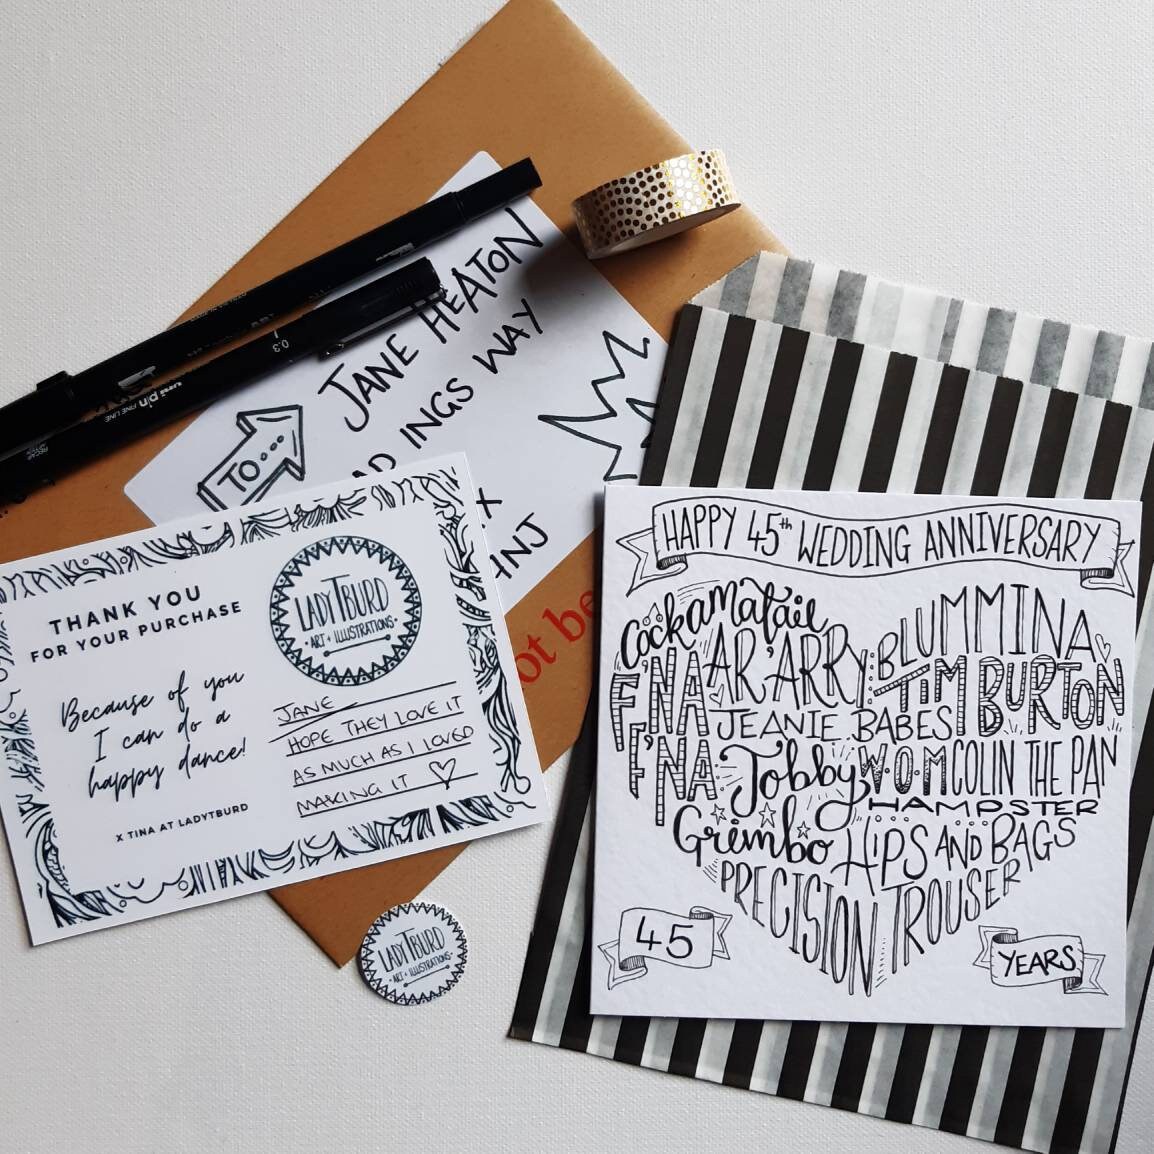 JANE HEATON
INGS WAY
TO....
X
HNJ
ot be
0.3
uni pin FINE LINE
THANK YOU
FOR YOUR PURCHASE
Because of you
I can do a
happy dance!
X TINA AT LADYTBURD
LADYTBURD
ART + ILLUSTRATIONS
JANE
HOPE THEY LOVE IT
AS MUCH AS I LOVED
MAKING IT
LADYTBURD
ART + ILLUSTRATIONS
HAPPY 45th WEDDING ANNIVERSARY
Cockamafail BLUMMINA
F'NA AR'ARRY TIM BURTON
JEANIE BABES
F'NA Jobby W.O.M COLIN THE PAN
HAMPSTER
Grimbo HIPS AND BAGS
PRECISION TROUSER
45
YEARS